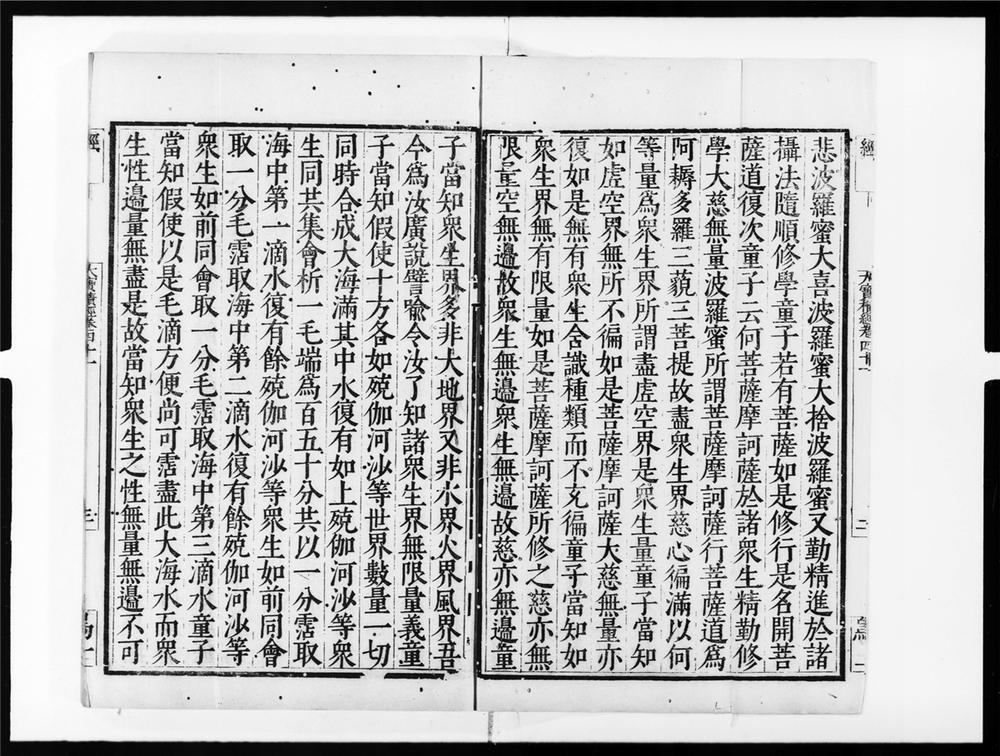 悲波羅蜜大喜波羅蜜大捨波羅蜜又勤精進於諸
攝法隨順修學童子若有菩薩如是修行是名開菩
薩道復次童子云何菩薩摩訶薩於諸衆生精勤修
學大慈無量波羅蜜所謂菩薩摩訶薩行菩薩道爲
阿耨多羅三藐三菩提故盡衆生界慈心徧滿以何
等量爲衆生界所謂盡虛空界是衆生量童子當知
如虛空界無所不徧如是菩薩摩訶薩大慈無量亦
復如是無有衆生含識種類而不充徧童子當知如
衆生界無有限量如是菩薩摩訶薩所修之慈亦無
限量空無邊故衆生無邊衆生無邊故慈亦無邊童
子當知衆生界多非大地界又非水界火界風界吾
今爲汝廣說譬喻令汝了知諸衆生界無限量義童
子當知假使十方各如殑伽河沙等世界數量一切
同時合成大海滿其中水復有如上殑伽河沙等衆
生同共集會析一毛端爲百五十分共以一分霑取
海中第一滴水復有餘殑伽河沙等衆生如前同會
取一分毛霑取海中第二滴水復有餘殑伽河沙等
衆生如前同會取一分毛霑取海中第三滴水童子
當知假使以是毛滴方便尚可霑盡此大海水而衆
生性邊量無盡是故當知衆生之性無量無邊不可
經
大寶積經卷四十一
三